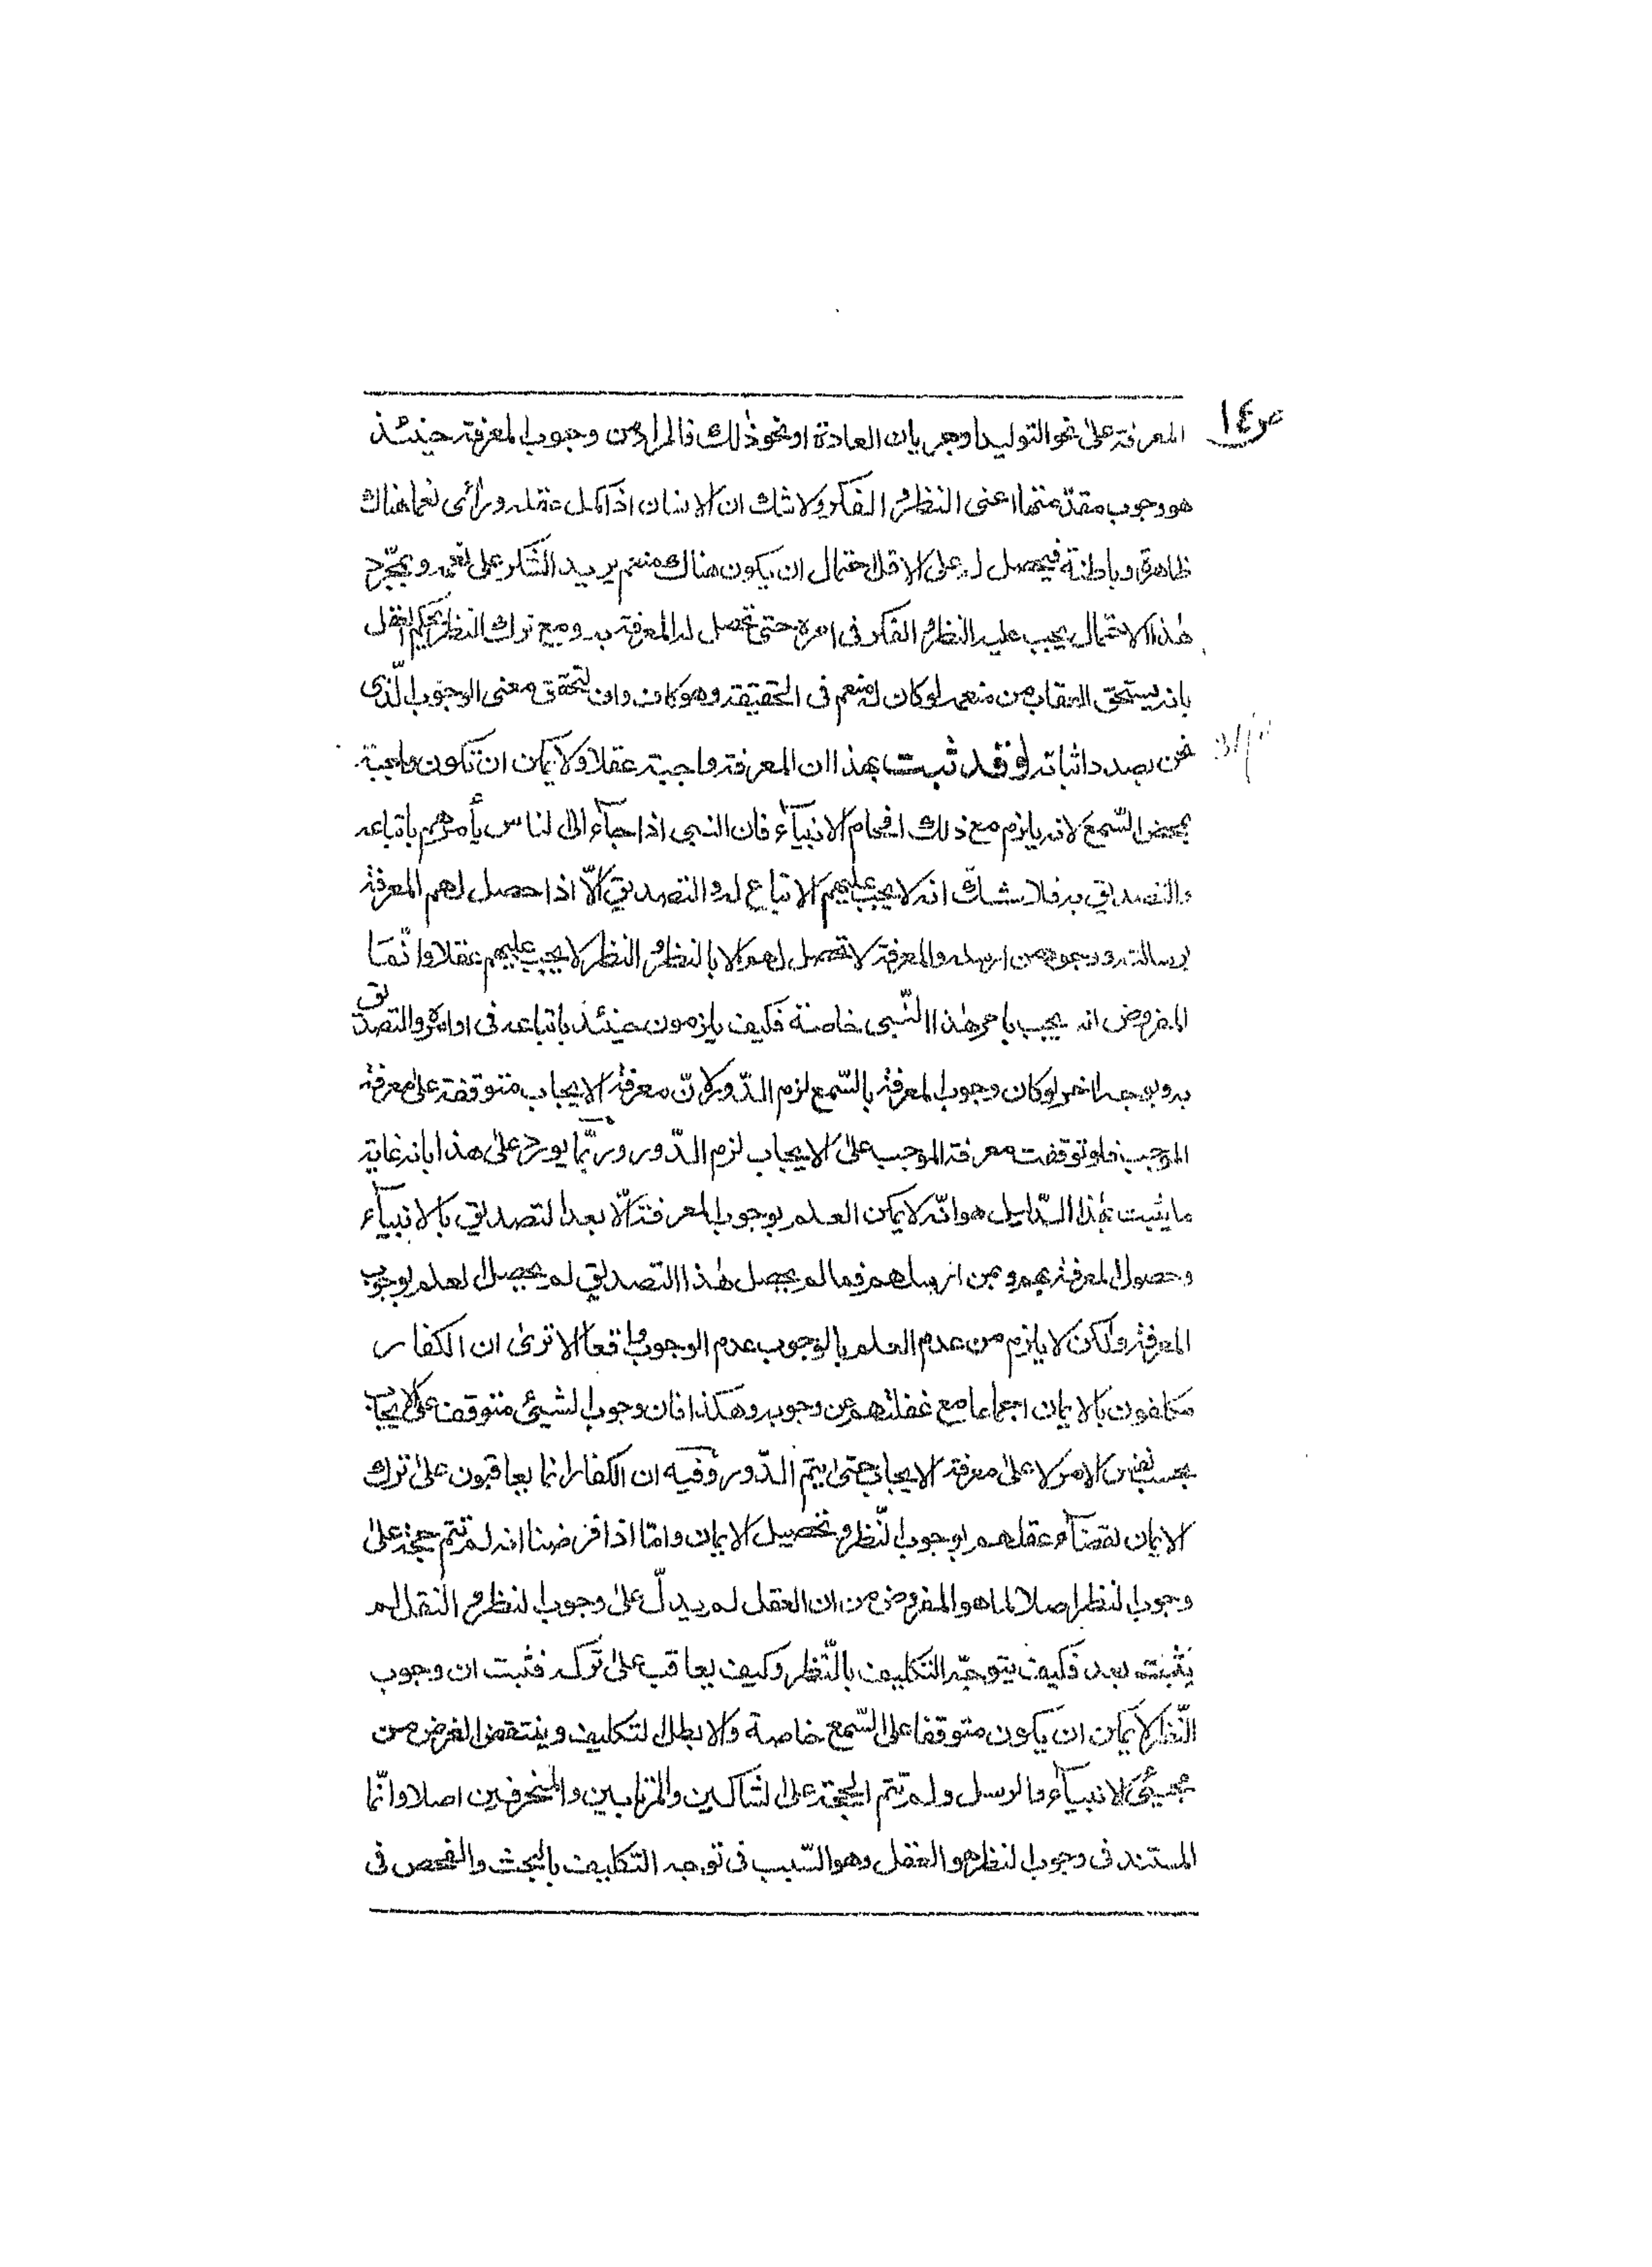 ص١٤
المعرفة على نحو التوليد او جريان العادة او نحو ذلك فالمراد من وجوب المعرفة حينئذ
هو وجوب مقدّمتها اعنى النظر و الفكر ولا شك ان الانسان اذا كمل عقله ورأى نعما هناك
ظاهرة و باطنة فيحصل له على الاقل احتمال ان يكون هناك منعم يريد الشكر على نعمه وبمجرّد
هذا الاحتمال يجب عليه النظر و الفكر فى امره حتى تحصل له المعرفة به ومع ترك النظر يحكم العقل
بانه يستحق العقاب من منعمه لو كان له منعم فى الحقيقة وهو كاف فى تحقق معنى الوجوب الّذى
نحن بصدد اثباته وقد ثبت بهذا ان المعرفة واجبة عقلا ولا يمكن ان تكون واجبة
بمحض السّمع لانه يلزم مع ذلك افحام الانبيآء فان النبى اذا جآء الى الناس يأمرهم باتباعه
والتصديق به فلا شكّ انه لا يجب عليهم الاتباع له والتصديق الّا اذا حصل لهم المعرفة
برسالته و بمن ارسله والمعرفة لا تحصل لهم الا بالنظر و النظر لا يجب عليهم عقلا وانّما
المفروض انه يجب بامر هذا النّبى خاصة فكيف يلزمون حينئذ باتباعه فى اوامره والتصديق
به وبوجه اخر لو كان وجوب المعرفة بالسّمع لزم الدّور لانّ معرفة الايجاب متوقفة على معرفة
الموجب فلو توقفت معرفة الموجب على الايجاب لزم الدّور وربّما يورد على هذا بانه غاية
ما يثبت بهذا الدّليل هو انّه لا يمكن العلم بوجوب المعرفة الّا بعد التصديق بالانبيآء
وحصول المعرفة بهم وبمن ارسلهم فما لم يحصل هذا التصديق لم يحصل العلم بوجوب
المعرفة ولكن لا يلزم من عدم العلم بالوجوب عدم الوجوب واقعا الا ترى ان الكفار
مكلفون بالايمان اجماعا مع غفلتهم عن وجوبه وهكذا فان وجوب الشيئ متوقف على الايجاب
بحسب نفس الامر لا على معرفة الايجاب حتى يتم الدّور وفيه ان الكفار انما يعاقبون على ترك
الايمان لقضآء عقلهم بوجوب النّظر و تحصيل الايمان وامّا اذا فرضنا انه لم تتم حجة على
وجوب النظر اصلا لما هو المفروض من ان العقل لم يدلّ على وجوب النظر و النقل لم
يثبته بعد فكيف يتوجّه التكليف بالنّظر وكيف يعاقب على تركه فثبت ان وجوب
النّظر لا يمكن ان يكون متوقفا على السّمع خاصة والا بطل التكليف وينتقض الغرض من
مجيئ الانبيآء والرسل ولم تتم الحجة على الشاكين والمرتابين والمنحرفين اصلا وانّما
المستند فى وجوب النظر هو العقل وهو السّبب فى توجه التكليف بالبحث والفحص فى